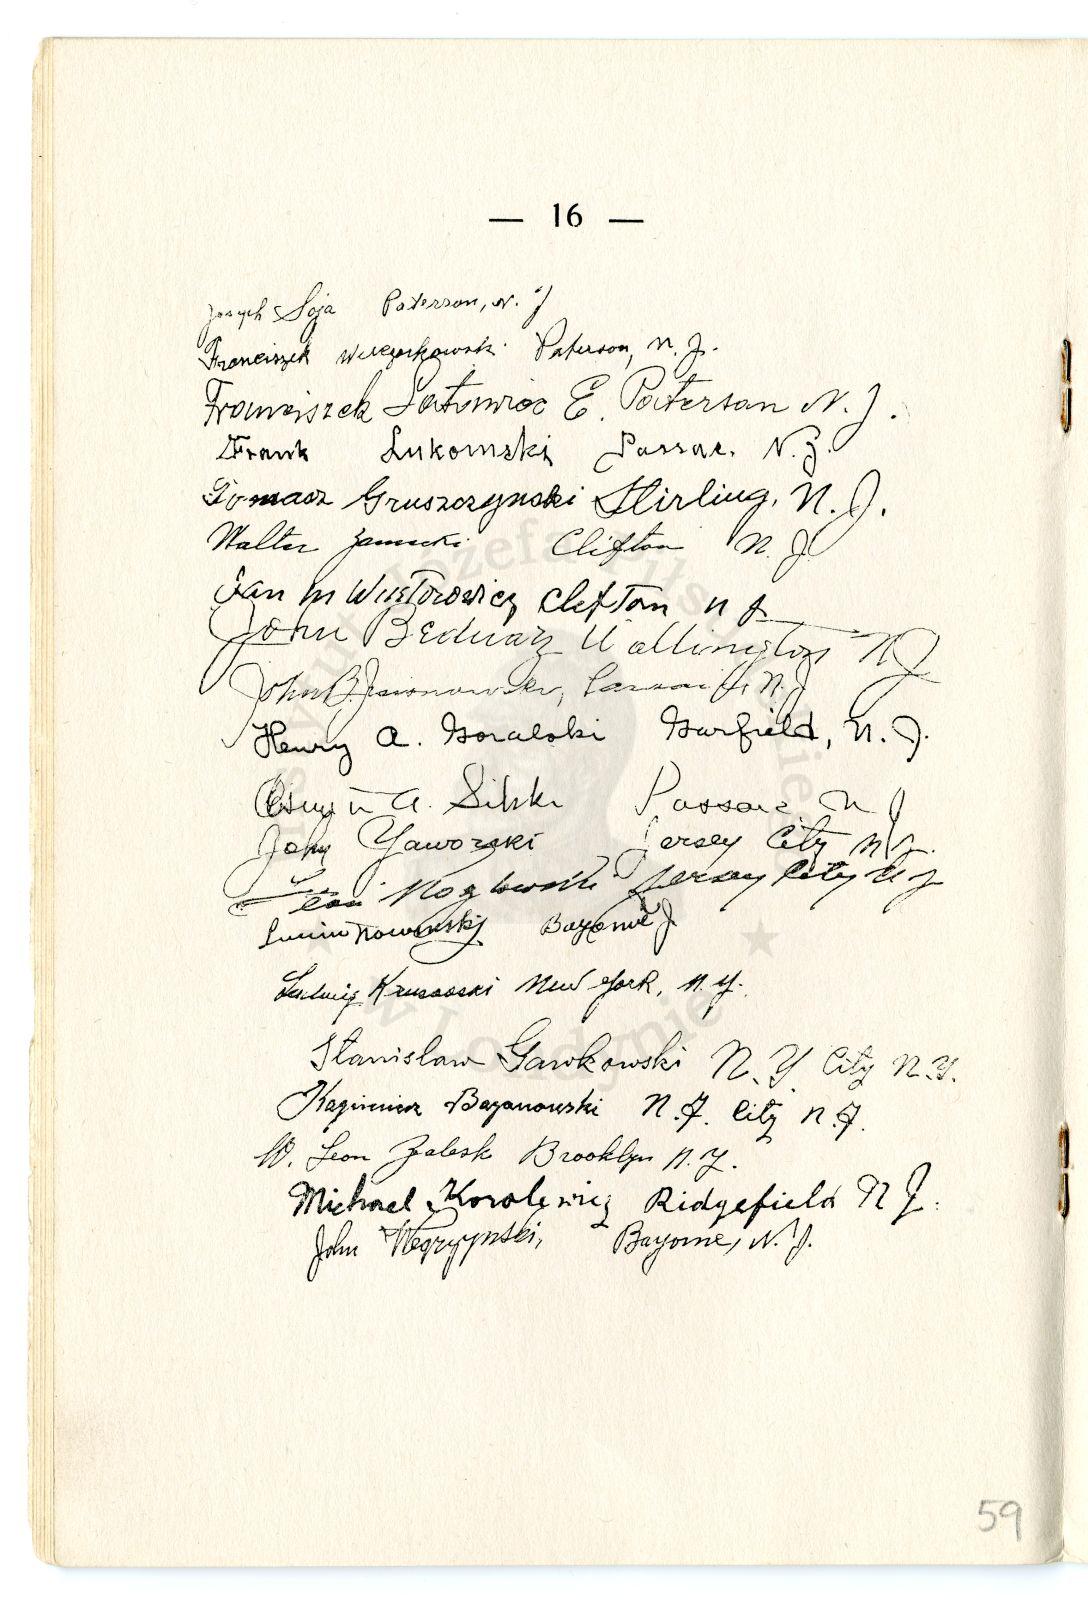 — 16 —
Joseph Soja Paterson, N. J
Franciszek Paterson, N. J.
Franciszek E. Paterson N. J.
Frank Lukomski Passac. N. J.
Tomasz Gruszczynski Stirling, N. J.
Walter Clifton N. J.
Jan M Wustorowicz Clifton N J
John Bednarz Wallington N J
John B. N. J
Henry A. Goralski Garfield, N. J.
A. Silski Passaic N J
John Yaworski Jersey City N J.
Leon Jersey City N J
Nowinski Bayonne J
Ludwig New York, N. Y.
Stanislaw Gawkowski N. Y City N. Y.
Kazimierz Bazanowski N. J. City N. J.
W. Leon Zalesk Brooklyn N. Y.
Michael Korolewicz Ridgefield N J.
John Wegrzynski, Bayonne, N. J.
Józefa Piłsudskiego
w Londynie
59